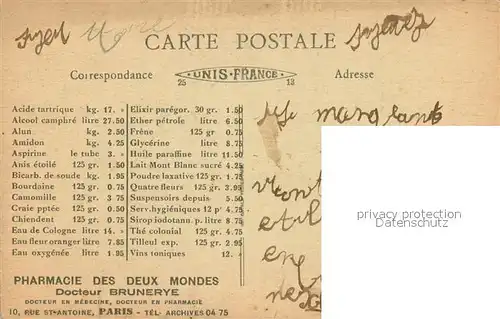 CARTE POSTALE
Correspondance UNIS-FRANCE Adresse
25 13
Acide tartrique kg. 17. »
Alcool camphré litre 27.50
Alun kg. 2.50
Amidon kg. 4.25
Aspirine le tube 3. »
Anis étoilé 125 gr. 1.50
Bicarb. de soude kg. 1.95
Bourdaine 125 gr. 0.75
Camomille 125 gr. 3.75
Craie pptée 125 gr. 0.50
Chiendent 125 gr. 0.75
Eau de Cologne litre 14. »
Eau fleur oranger litre 7.85
Eau oxygénée litre 1.95
Elixir parégor. 30 gr. 1.50
Ether pétrole litre 6.50
Frêne 125 gr 0.75
Glycérine litre 8.75
Huile paraffine litre 11.50
Lait Mont Blanc sucré 4.25
Poudre laxative 125 gr. 1.75
Quatre fleurs 125 gr. 3.95
Suspensoirs depuis 5.50
Serv. hygiéniques 12 pr 4.75
Sirop iodotann. p. litre 8.75
Thé colonial 125 gr. 4.75
Tilleul exp. 125 gr. 2.95
Vins toniques 12. »
PHARMACIE DES DEUX MONDES
Docteur BRUNERYE
DOCTEUR EN MÉDECINE, DOCTEUR EN PHARMACIE
10, RUE ST-ANTOINE, PARIS - TÉL. ARCHIVES 04 75
privacy protection
Datenschutz